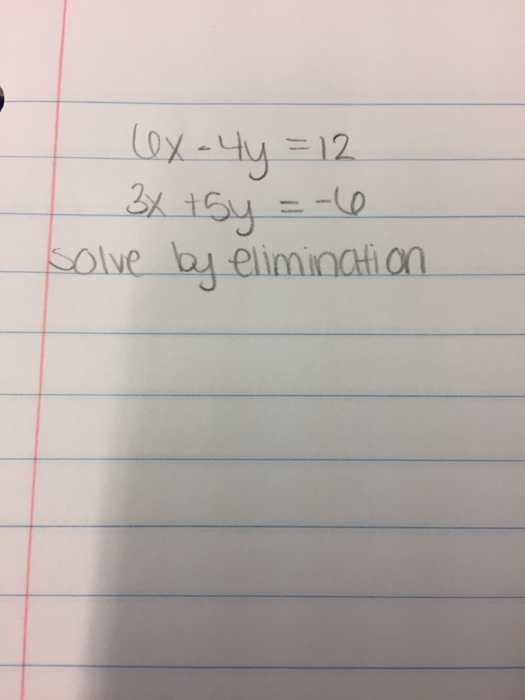 6x - 4y = 12
3x + 5y = -6
solve by elimination